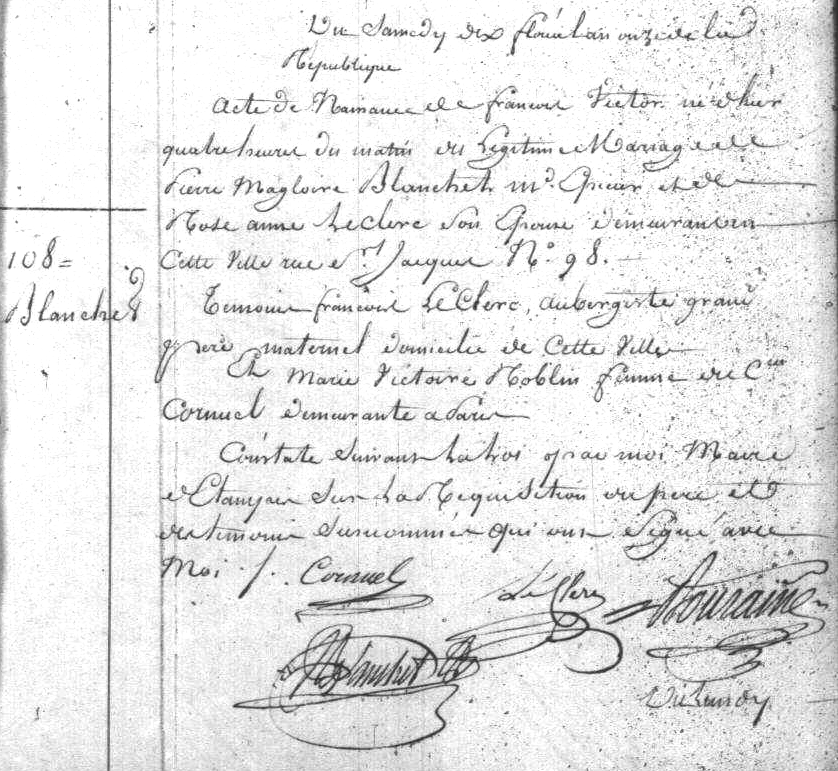 Du Samedy dix floréal an onze de la
République
acte de Naissance de françois Victor né d'hier
quatre heures du matin du Légitime Mariage de
Pierre Magloire Blanchet md. Epicier et de
Rose anne Leclerc son Epouse demeurant en
Cette Ville rue St. Jacques No. 98.
108=
Blanchet
Temoins françois LeClerc, aubergiste grand
pere maternel domicilié de Cette Ville
Et Marie Victoire Noblin femme de Cen
Cornuel demeurante a Paris
Constaté Suivant La Loi par moi Maire
d'Etampes Sur La Requisition du pere et
des temoins Susnommés qui ont Signé avec
Moi ./. Cornuel
LeClerc
Blanchet
Du Lundy